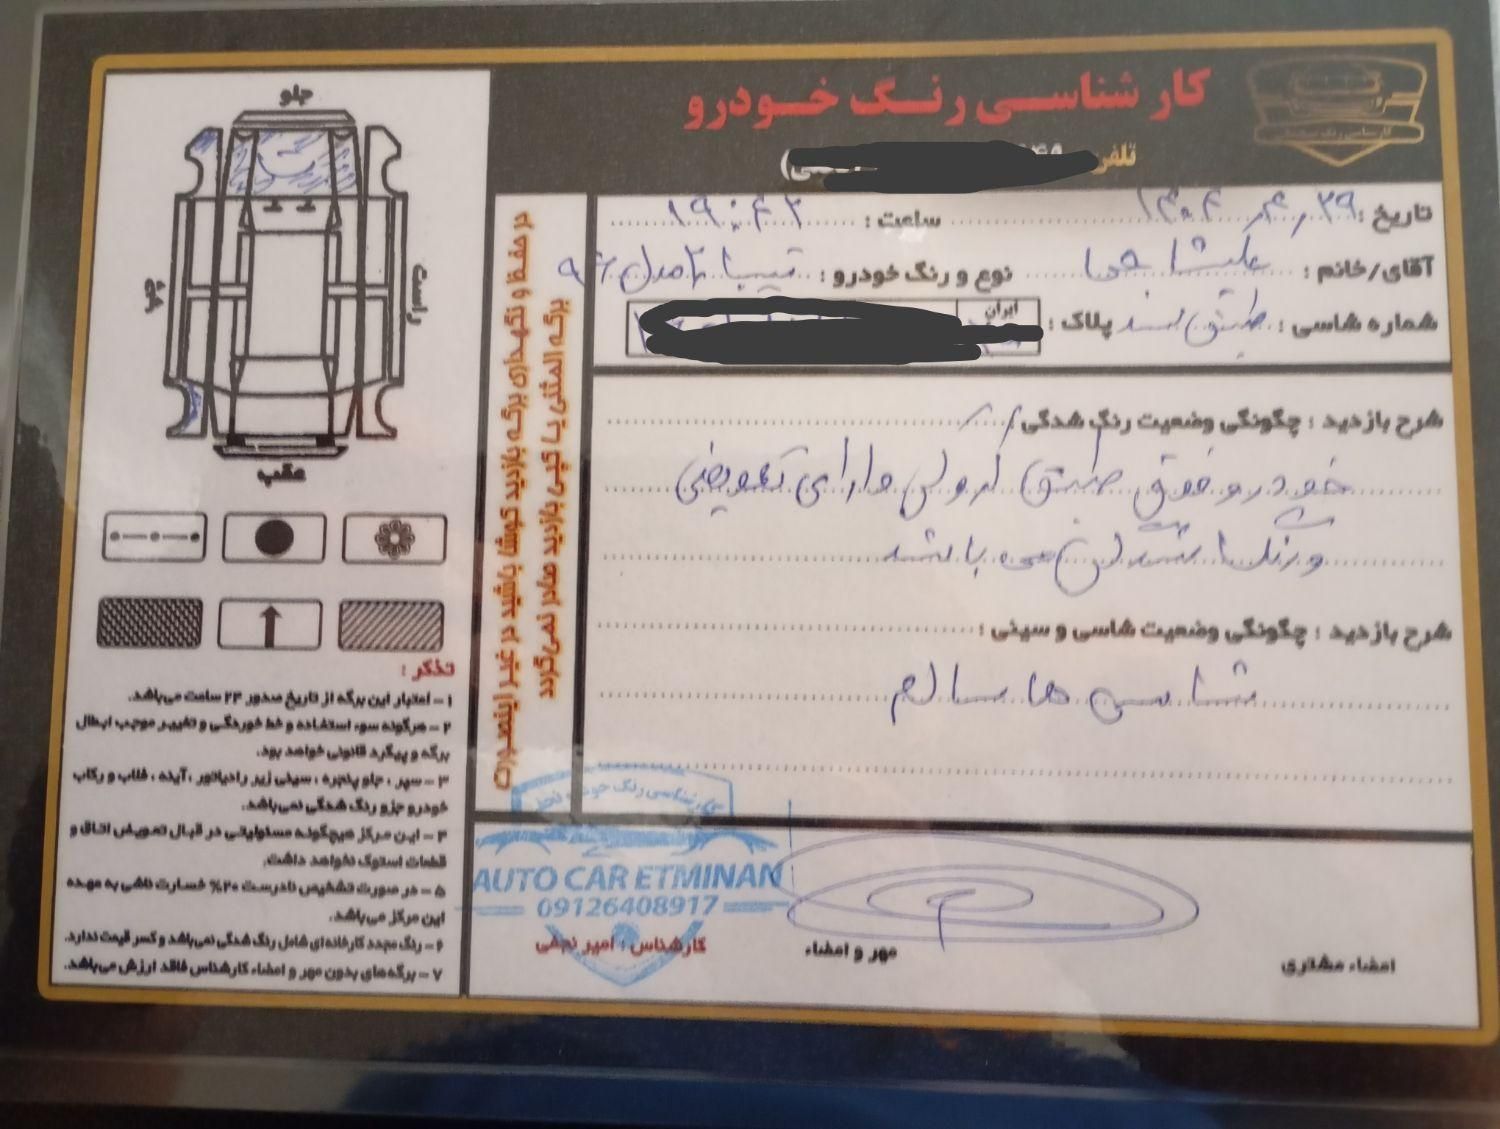 کارشناسی رنگ خودرو
تلفن
تاریخ : ۱۴۰۴,۴,۲۹ ساعت : ۱۹:۴۲
آقای/خانم : علیشاهی نوع و رنگ خودرو : تیبا ۲ مدل ۹۶
شماره شاسی : طبق سند پلاک :
ایران
شرح بازدید : چگونگی وضعیت رنگ شدگی :
خودرو فوق طبق کروکی دارای تعویض
و رنگ شدگی می باشد
شرح بازدید : چگونگی وضعیت شاسی و سینی :
شاسی ها سالم
در حفظ و نگهداری برگه بازدید کوشا باشید در غیر اینصورت
برگه المثنی یا کپی بازدید صادر نمی‌گردد
جلو
راست
چپ
عقب
تذکر :
۱ – اعتبار این برگه از تاریخ صدور ۲۴ ساعت می‌باشد.
۲ – هرگونه سوء استفاده و خط خوردگی و تغییر موجب ابطال
برگه و پیگرد قانونی خواهد بود.
۳ – سپر ، جلو پنجره ، سینی زیر رادیاتور ، آینه ، قلاب و رکاب
خودرو جزو رنگ شدگی نمی‌باشد.
۴ – این مرکز هیچگونه مسئولیتی در قبال تعویض اتاق و
قطعات استوک نخواهد داشت.
۵ – در صورت تشخیص نادرست ۲۰% خسارت ناشی به عهده
این مرکز می‌باشد.
۶ – رنگ مجدد کارخانه‌ای شامل رنگ شدگی نمی‌باشد و کسر قیمت ندارد.
۷ – برگه‌های بدون مهر و امضاء کارشناس فاقد ارزش می‌باشد.
کارشناسی رنگ خودرو نجفی
AUTO CAR ETMINAN
09126408917
کارشناس : امیر نجفی
مهر و امضاء
امضاء مشتری